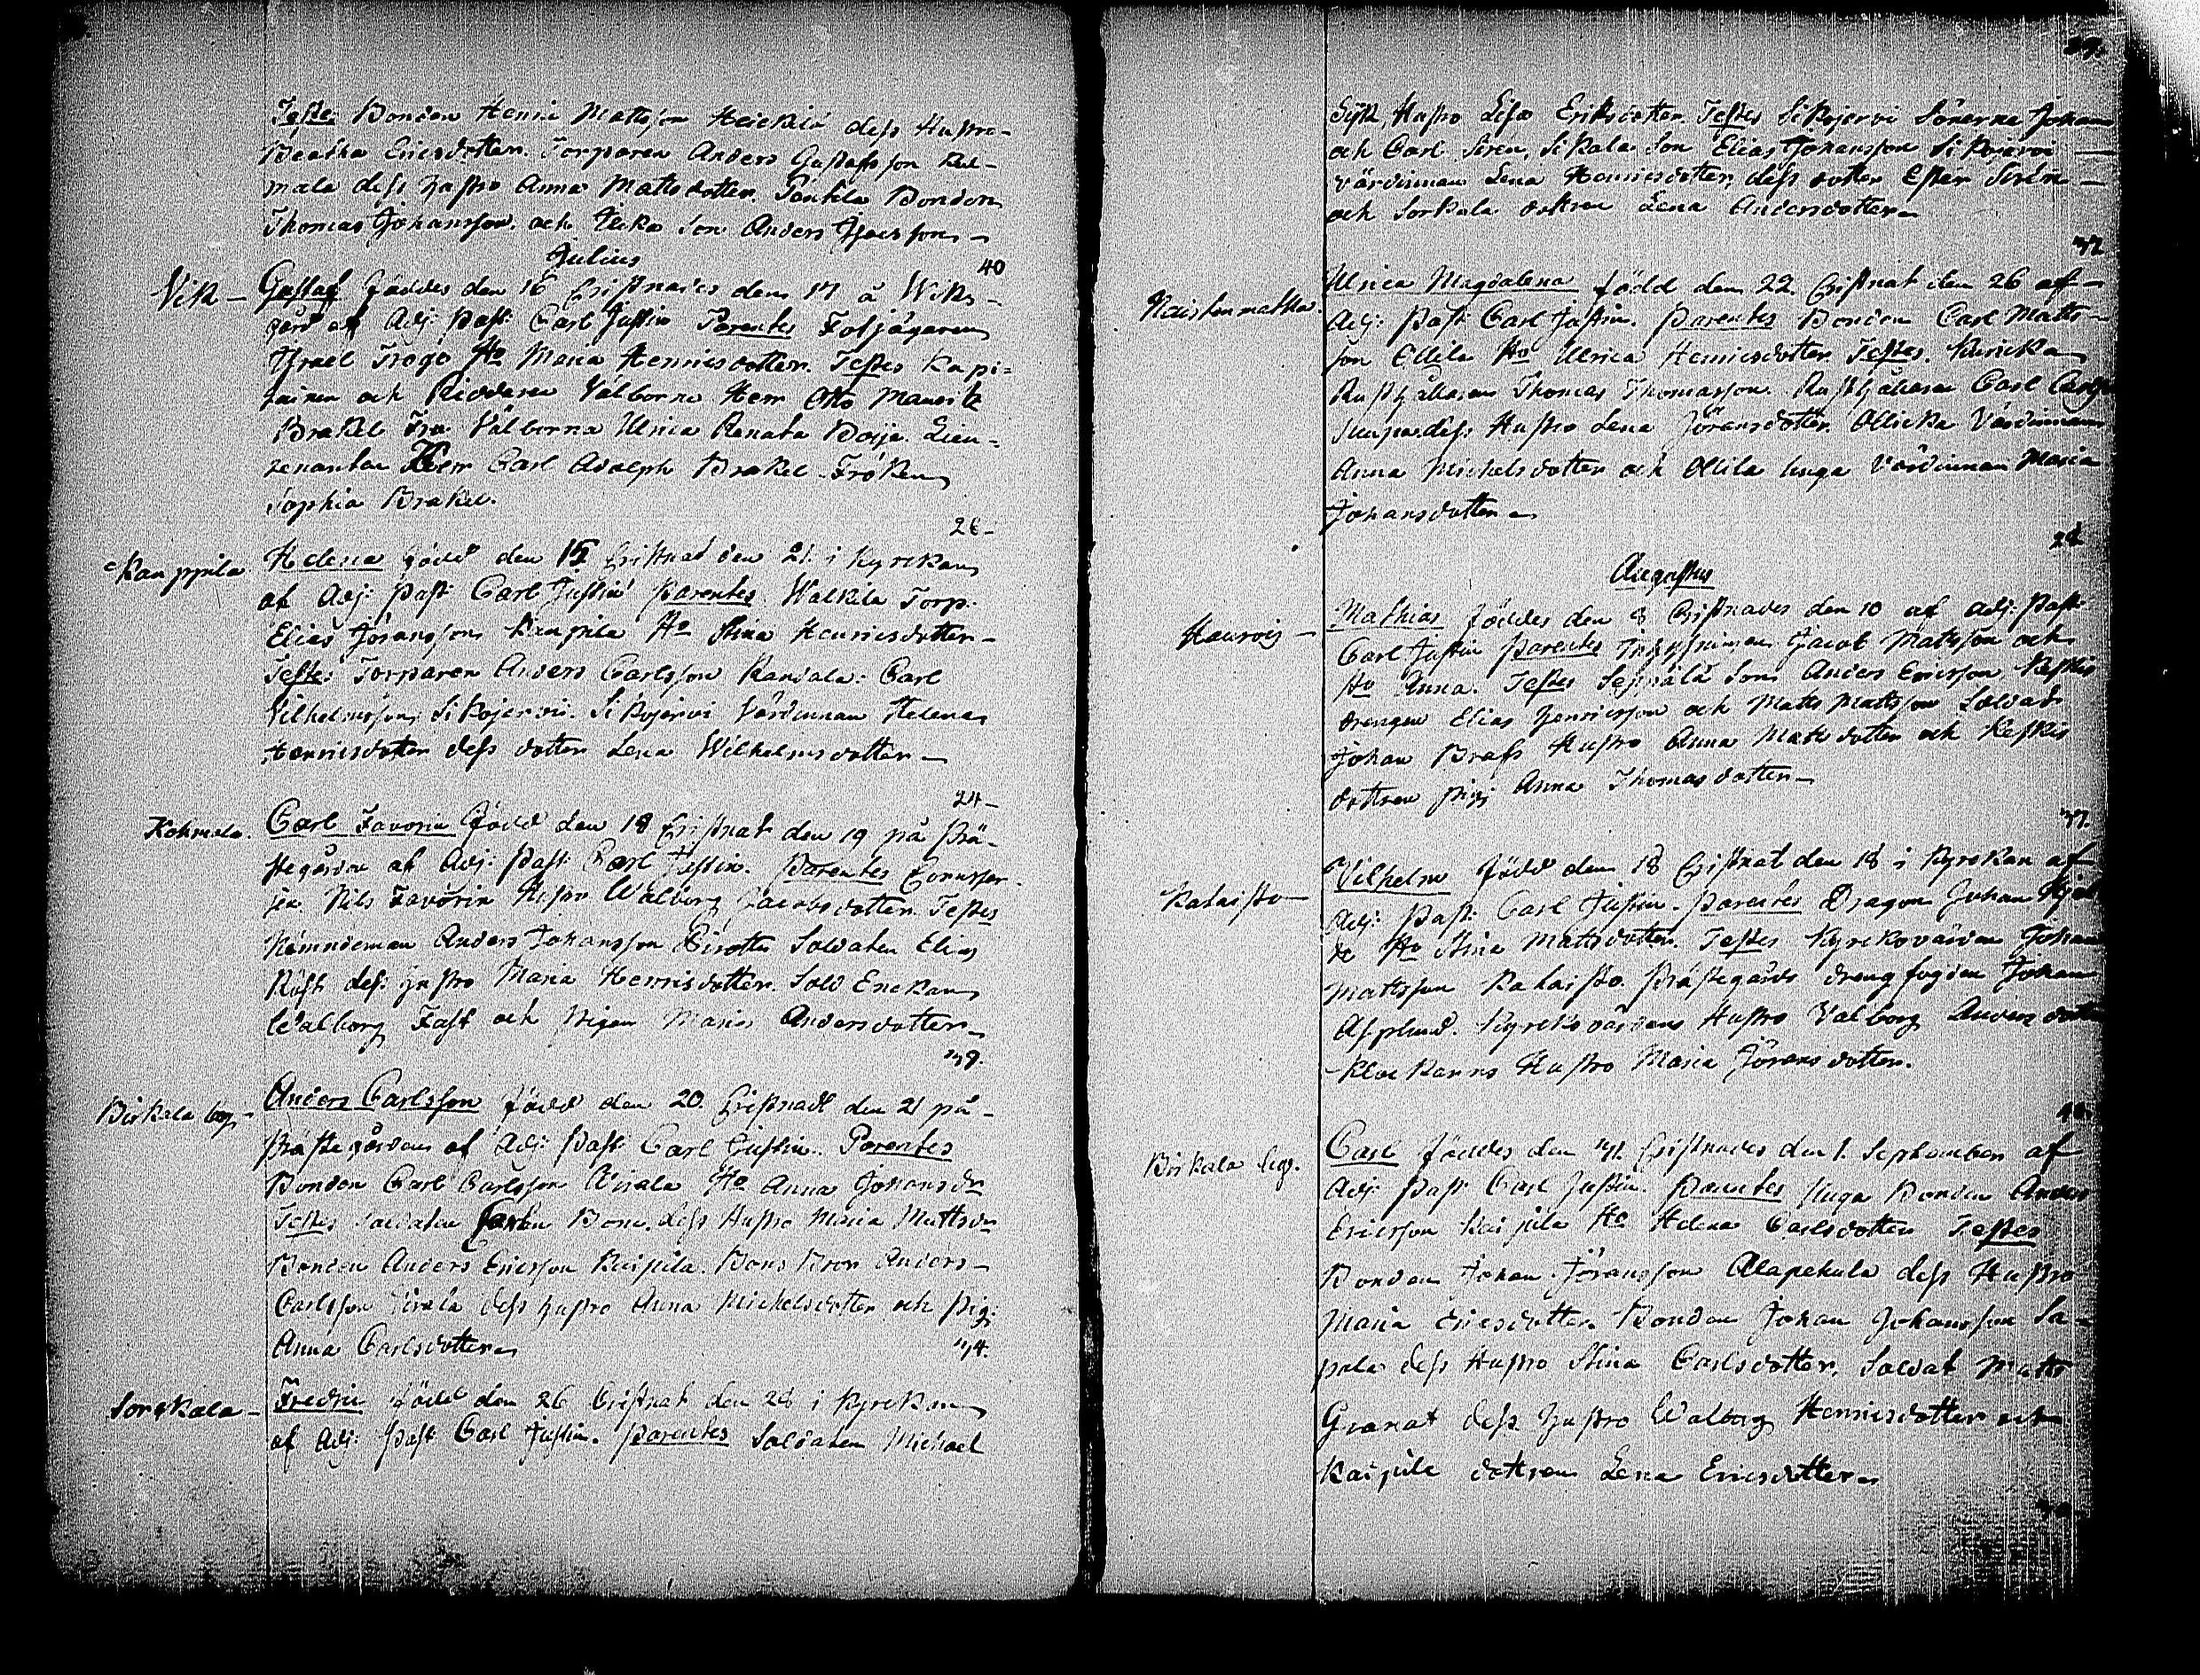 Testes Bonden Henric Mattsson Heickilä dess Hustro
Beatha Ericsdotter. Torparen Anders Gustafsson Kul-
mala dess hustro Anna Mattsdotter. Pentilä Bonden
Thomas Johansson. och Son Anders
Julius
40
Vik – Gustaf föddes den 16 Christnades den 17 å Wiks-
gård af Adj: Past: Carl Justin Parentes
Israel Trogö Ho Maria Henricsdotter. Testes Kapi-
tainen och Riddaren Välborne Herr Otto Mauritz
Brakel Fru Välborna Ulrica Renata Boije. Lieu-
tenanten Herr Carl Adolph Brakel. Fröken
Sophia Brakel.
26 –
Kauppila Helena född den 15 Christnad den 21. i Kyrckan
af Adj: Past: Carl Justin Parentes Walkila Torp.
Elias Jöransson Kaupila Ho Stina Henricsdotter –
Testes Torparen Anders Carlsson Randala: Carl
Vilhelmsson, Sikojervi. Sikojervi Värdinnan Helena
Henricsdotter dess dotter Lena Wilhelmsdotter –
24 –
Kohmala. Carl Favorin född den 18 Christnat den 19 på Prä-
stegården af Adj: Past: Carl Justin. Parentes
Nils Favorin Hustru Walborg Jacobsdotter. Testes
Nämndeman Anders Johansson Soldaten Elias
Röst dess hustro Maria Henricsdotter. Sold Enckan
Walborg Fast och Pigan Maria Andersdotter –
39.
Birkala by – Anders Carlsson född den 20. Christnad den 21 på
Prästegården af Adj: Past: Carl Justin. Parentes
Bonden Carl Carlsson Ho Anna Johansdr
Testes Soldaten Bom. dess Hustro Maria Mattsdr
Bonden Anders Ericsson Kaipila. Bond Bron Anders –
Carlsson dess hustro Anna Michelsdotter och pig:
Anna Carlsdotter –
34.
Sorkkala – Fredric född den 26 Christnat den 28 i Kyrckan
af Adj: Past: Carl Justin. Parentes Soldaten Michael
29.
Sijk, Hustro Lisa Eriksdotter. Testes Sikojervi Sönerna Johan
och Carl Siren, Sikala Son Elias Johansson Sikojervi
värdinnan Lena Henricsdotter, dess dotter Ester Sirén –
och Sorkala dottren Lena Andersdotter –
32
Naistenmatka. Ulrica Magdalena född den 22. Christnat den 26 af –
Adj: Past: Carl Justin. Parentes Bonden Carl Matts-
son Ollila Ho Ulrica Henricsdotter Testes.
Rusthållaren Thomas Thomasson. Rusthållaren Carl
dess Hustro Lena Jöransdotter. Värdinnan
Anna Michelsdotter och Ollila unga Värdinnan Maria
Johansdotter –
28
Augustus
Haurois – Mathias föddes den 8 Christnades den 10 af Adj: Past:
Carl Justin Parentes Jacob Mattsson och
Ho Anna. Testes Seppälä Son Anders Ericsson,
drengen Elias Henricsson och Matts Mattsson Soldat
Johan Brass Hustro Anna Matsdotter och Keskis
dottren pig: Anna Thomasdotter –
37.
Kalaisto – Vilhelm född den 13 Christnat den 18 i Kyrckan af
Adj: Past: Carl Justin. Parentes Dragon Johan
Ho Stina Mattsdotter. Testes Kyrckovärden Johan
Mattsson Kalaisto. Prästegårds drengfogden Johan
Asplund. Kyrckovärdens Hustro Valborg Andersdotter
Klockarens Hustro Maria Jöransdotter.
Birkala by. Carl föddes den 31. Christnades den 1. September af
Adj: Past: Carl Justin. Parentes Unga Bonden Anders
Ericsson Kaipila Ho Helena Carlsdotter Testes
Bonden Johan Jöransson Alapekula dess Hustro
Maria Ericsdotter. Bonden Johan Johansson Sa-
pala dess Hustro Stina Carlsdotter, Soldat Matts
Granat dess hustro Walborg Henricsdotter och
Kaipila dottren Lena Ericsdotter –